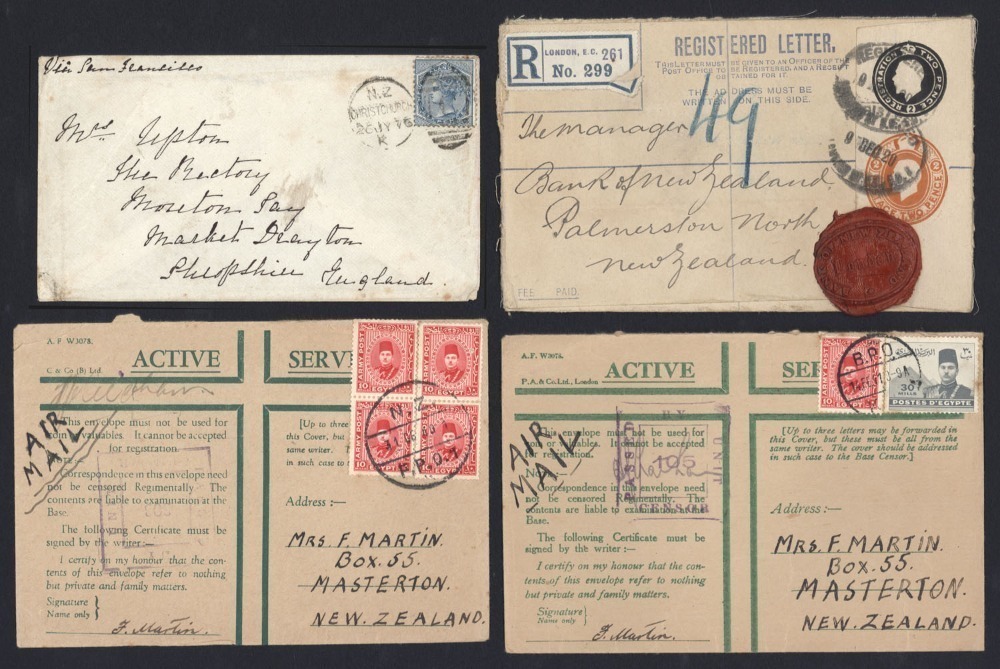 Via San Francisco
N.Z
CHRISTCHURCH
26 JY 76
K
Mrs Upton
The Rectory
Moreton Say
Market Drayton
Shropshire
England.
R
LONDON, E.C. 261
No. 299
REGISTERED LETTER.
THIS LETTER MUST BE GIVEN TO AN OFFICER OF THE
POST OFFICE TO BE REGISTERED, AND A RECEIPT
OBTAINED FOR IT.
THE ADDRESS MUST BE
WRITTEN ON THIS SIDE.
REGISTRATION TWO PENCE
9 DEC 20
POSTAGE TWO PENCE
49
The Manager
Bank of New Zealand
Palmerston North
New Zealand.
FEE PAID.
A.F. W3078.
C & Co (B) Ltd.
ACTIVE SERV
ARMY POST
10
N.Z.
AIR
MAIL
This envelope must not be used for
coin or valuables. It cannot be accepted
for registration.
Correspondence in this envelope need
not be censored Regimentally. The
contents are liable to examination at the
Base.
The following Certificate must be
signed by the writer:—
I certify on my honour that the con-
tents of this envelope refer to nothing
but private and family matters.
Signature
Name only }
F. Martin.
[Up to three
this Cover, but
same writer.
in such case to
Address:—
MRS. F. MARTIN.
BOX. 55.
MASTERTON.
NEW. ZEALAND.
A.F. W3078.
P.A. & Co. Ltd., London
ACTIVE SE
ARMY POST
10
B.P.O.
30
MILLS
POSTES D'EGYPTE
AIR
MAIL
This envelope must not be used for
coin or valuables. It cannot be accepted
for registration.
PASSED
BY
UNIT
CENSOR
105
Correspondence in this envelope need
not be censored Regimentally. The
contents are liable to examination at the
Base.
The following Certificate must be
signed by the writer:—
I certify on my honour that the con-
tents of this envelope refer to nothing
but private and family matters.
Signature
Name only }
F. Martin.
[Up to three letters may be forwarded in
this Cover, but these must be all from the
same writer. The cover should be addressed
in such case to the Base Censor.]
Address:—
MRS. F. MARTIN.
BOX. 55.
MASTERTON.
NEW. ZEALAND.